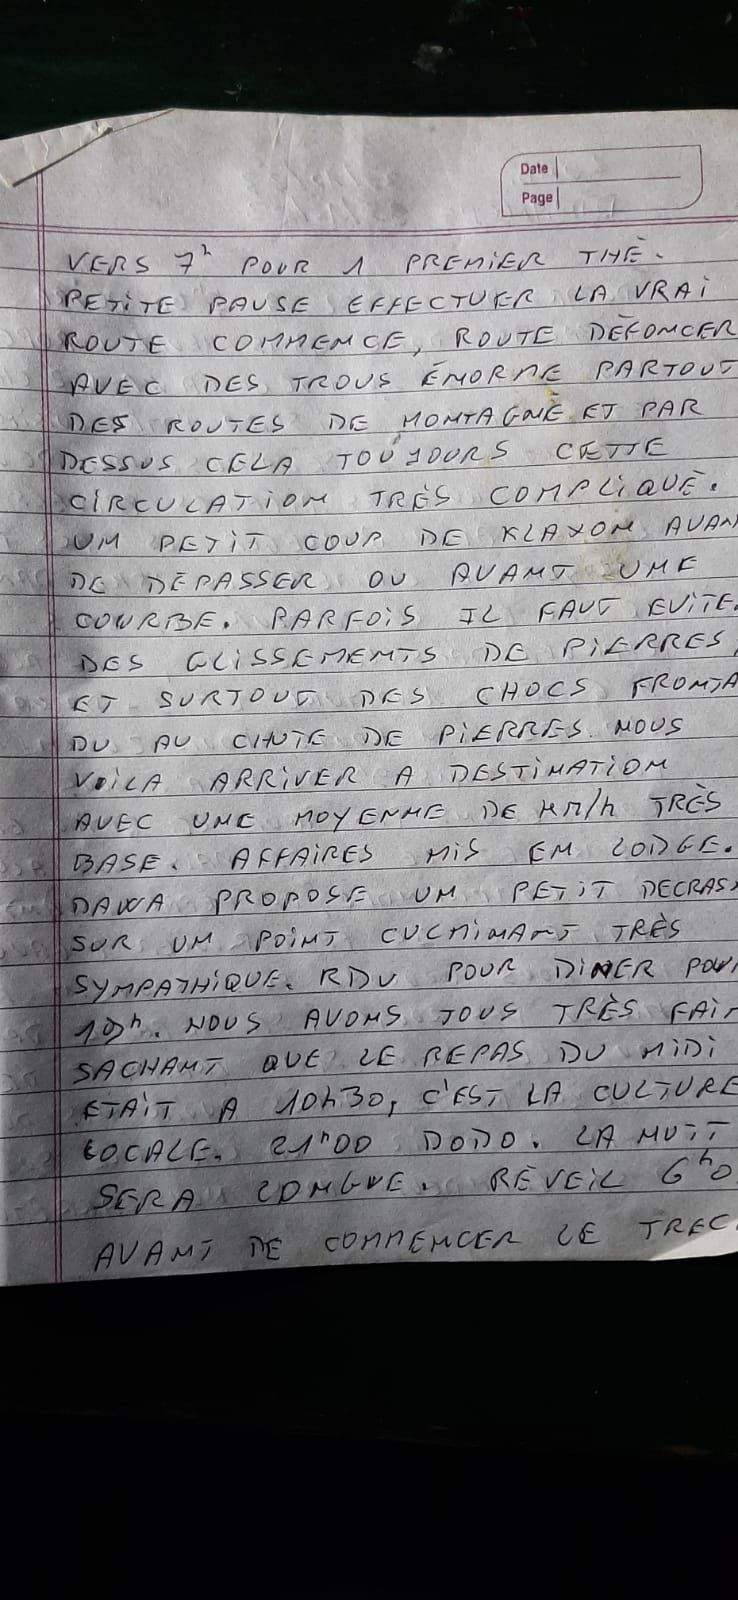 Date
Page
VERS 7h POUR 1 PREMIER THÉ.
PETITE PAUSE EFFECTUER LA VRAI
ROUTE COMMENCE, ROUTE DÉFONCER
AVEC DES TROUS ÉNORME PARTOUT
DES ROUTES DE MONTAGNE ET PAR
DESSUS CELA TOUJOURS CETTE
CIRCULATION TRÈS COMPLIQUÉ.
UN PETIT COUP DE KLAXON AVAN
DE DÉPASSER OU AVANT UNE
COURBE. PARFOIS IL FAUT EVITE
DES GLISSEMENTS DE PIERRES,
ET SURTOUT DES CHOCS FRONTA
DU AU CHUTE DE PIERRES. NOUS
VOILA ARRIVER A DESTINATION
AVEC UNE MOYENNE DE KM/h TRÈS
BASE. AFFAIRES MIS EN LODGE.
DAWA PROPOSE UN PETIT DECRAS
SUR UN POINT CULMINANT TRÈS
SYMPATHIQUE. RDV POUR DINER POUR
19h. NOUS AVONS TOUS TRÈS FAIM
SACHANT QUE LE REPAS DU MIDI
ETAIT A 10h30, C'EST LA CULTURE
LOCALE. 21h00 DODO. LA NUIT
SERA LONGUE. RÉVEIL 6h0
AVANT DE COMMENCER LE TREC